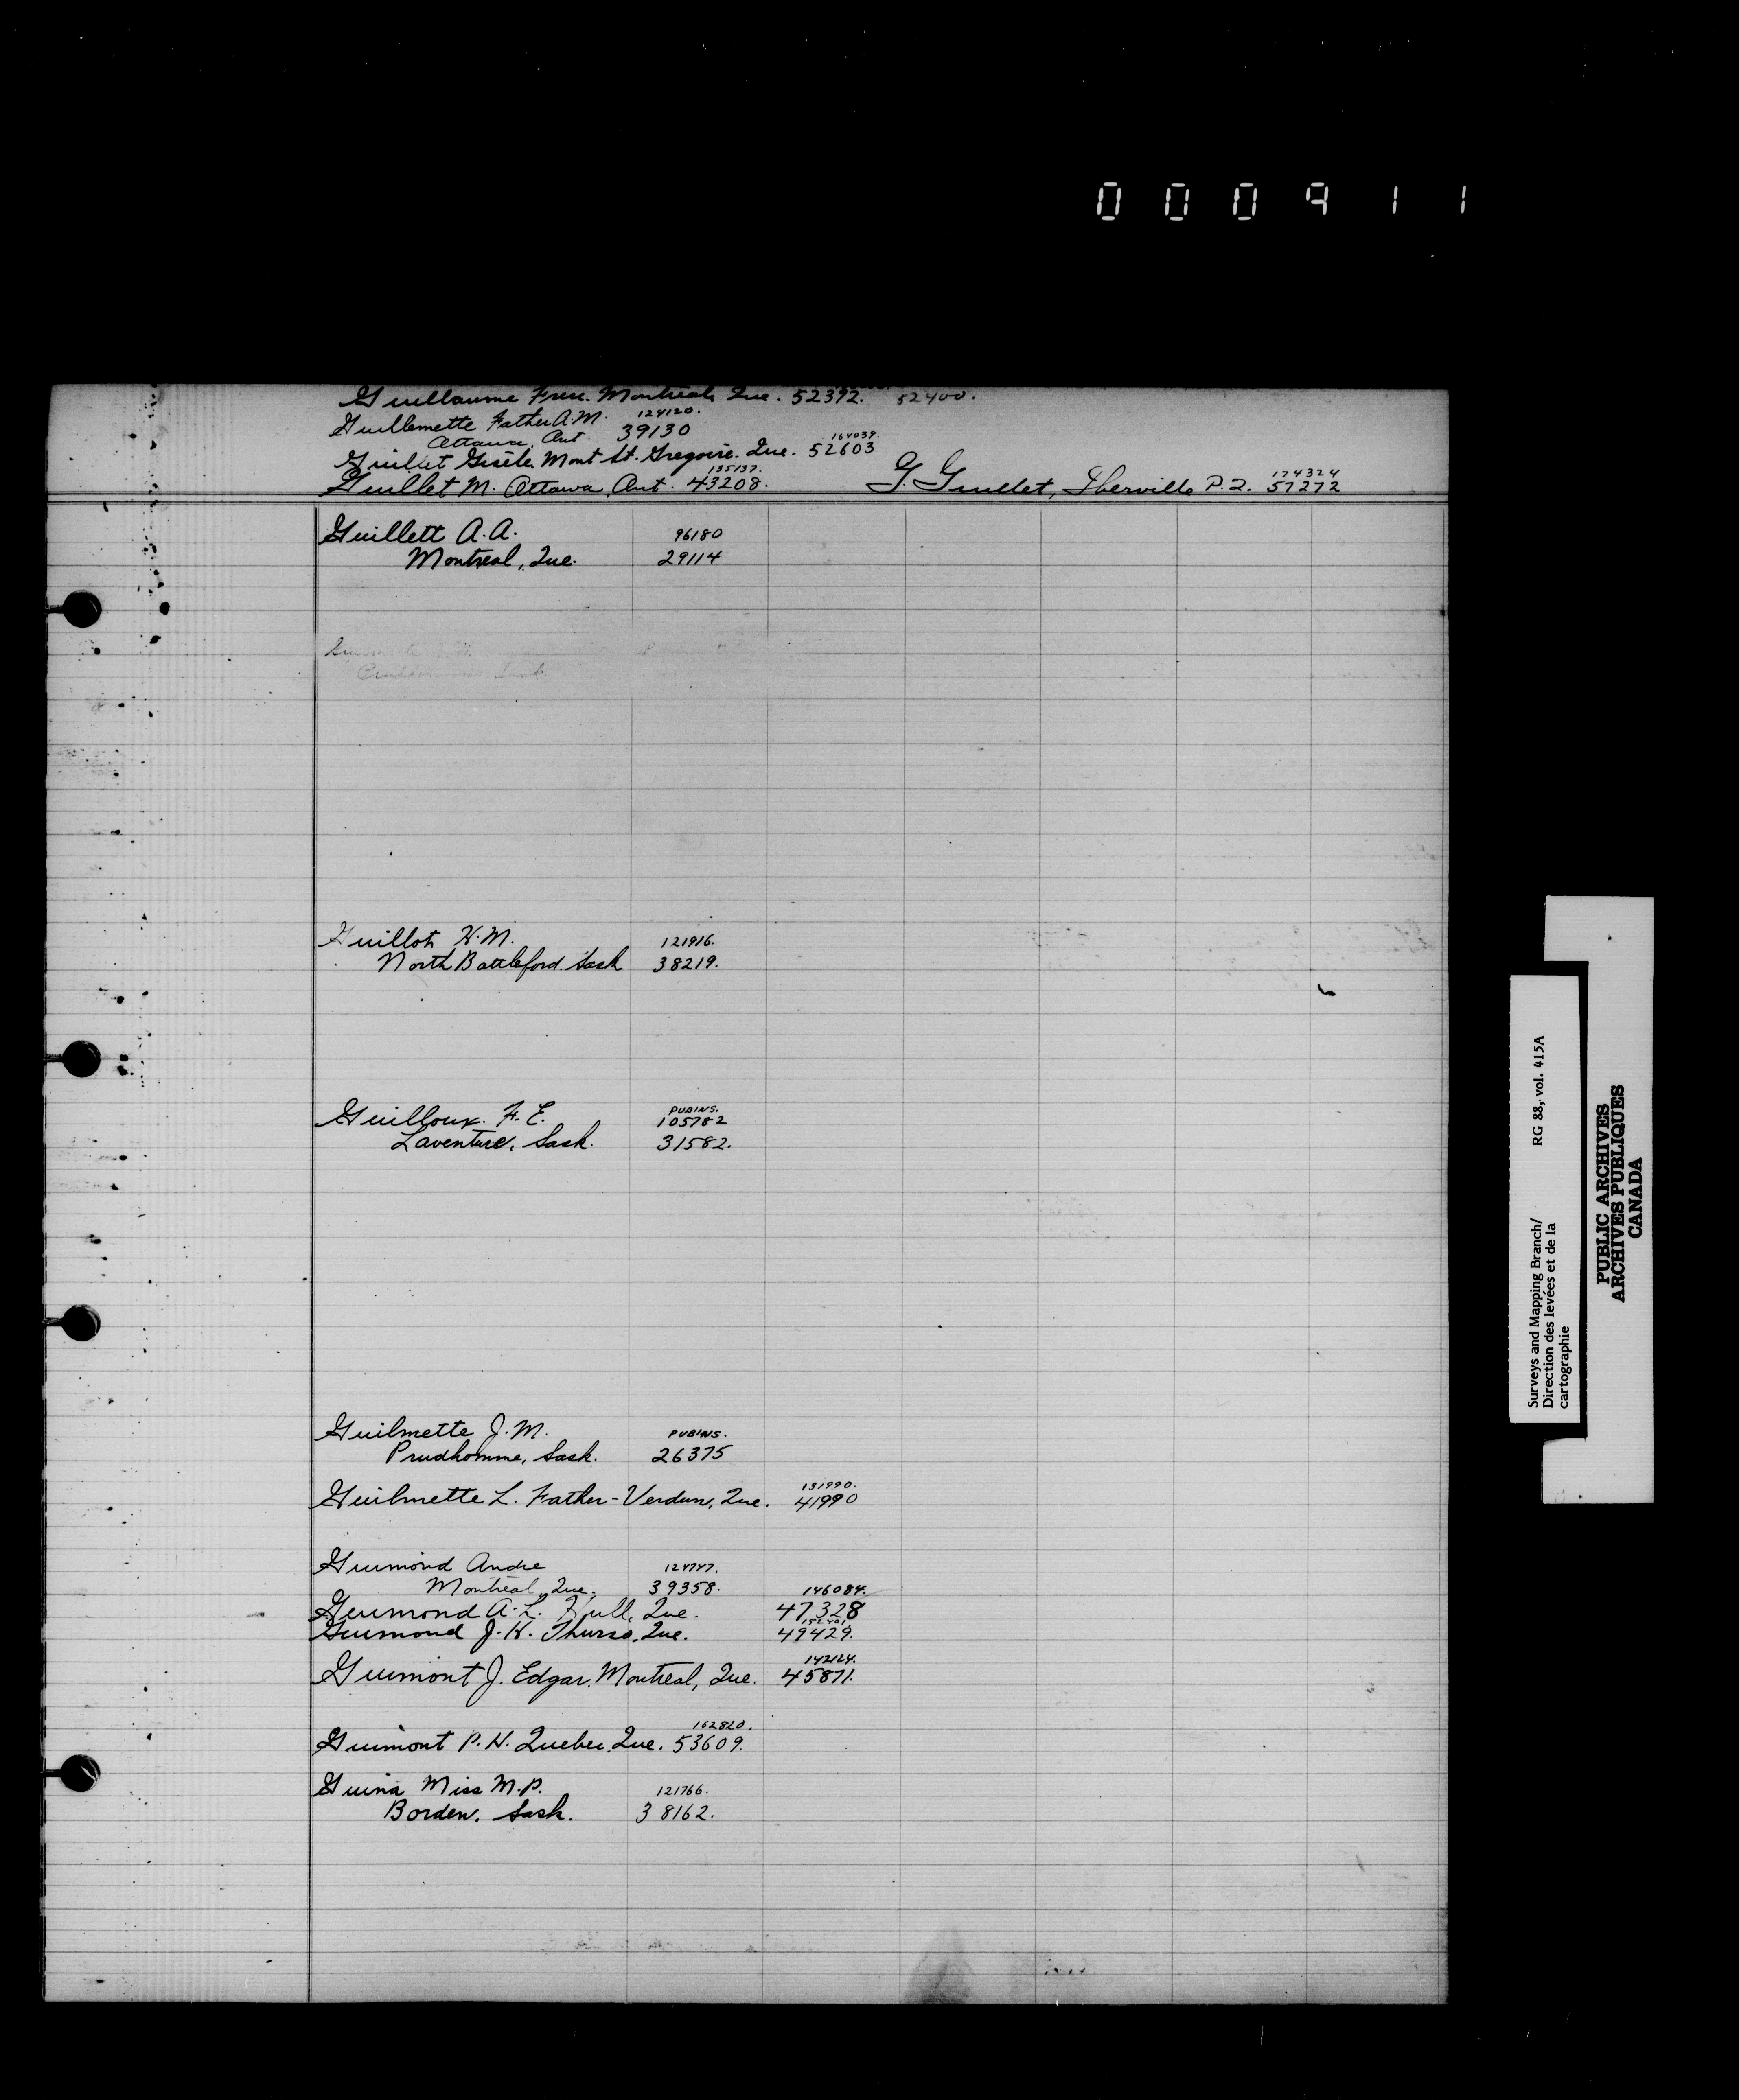 000911
Guillaume Frere. Montreal, Que. 52392. 52400.
Guillemette Father A.M. 124120.
Ottawa, Ont 39130
Guillet Gisele. Mont St. Gregoire. Que. 164039. 52603
Guillet M. Ottawa, Ont. 135137. 43208.
G. Guillet, Iberville P.Q. 174324 57272
Guillett A.A. 96180
Montreal, Que. 29114
Guillot H.M. 121916.
North Battleford. Sask 38219.
Guilloux. F. E. PUBINS. 105782
Laventure, Sask. 31582.
Guilmette J.M. PUBINS.
Prudhomme, Sask. 26375
Guilmette L. Father - Verdun, Que. 131990. 41990
Guimond Andre 124747.
Montreal, Que. 39358.
Guimond A.L. Hull, Que. 146084. 47328
Guimond J.H. Thurso, Que. 49429.
Guimont J. Edgar. Montreal, Que. 142124. 45871.
Guimont P.H. Quebec. Que. 162820. 53609.
Guina Miss M.P. 121766.
Borden. Sask. 38162.
Surveys and Mapping Branch/ RG 88, vol. 415A
Direction des levées et de la
cartographie
PUBLIC ARCHIVES
ARCHIVES PUBLIQUES
CANADA